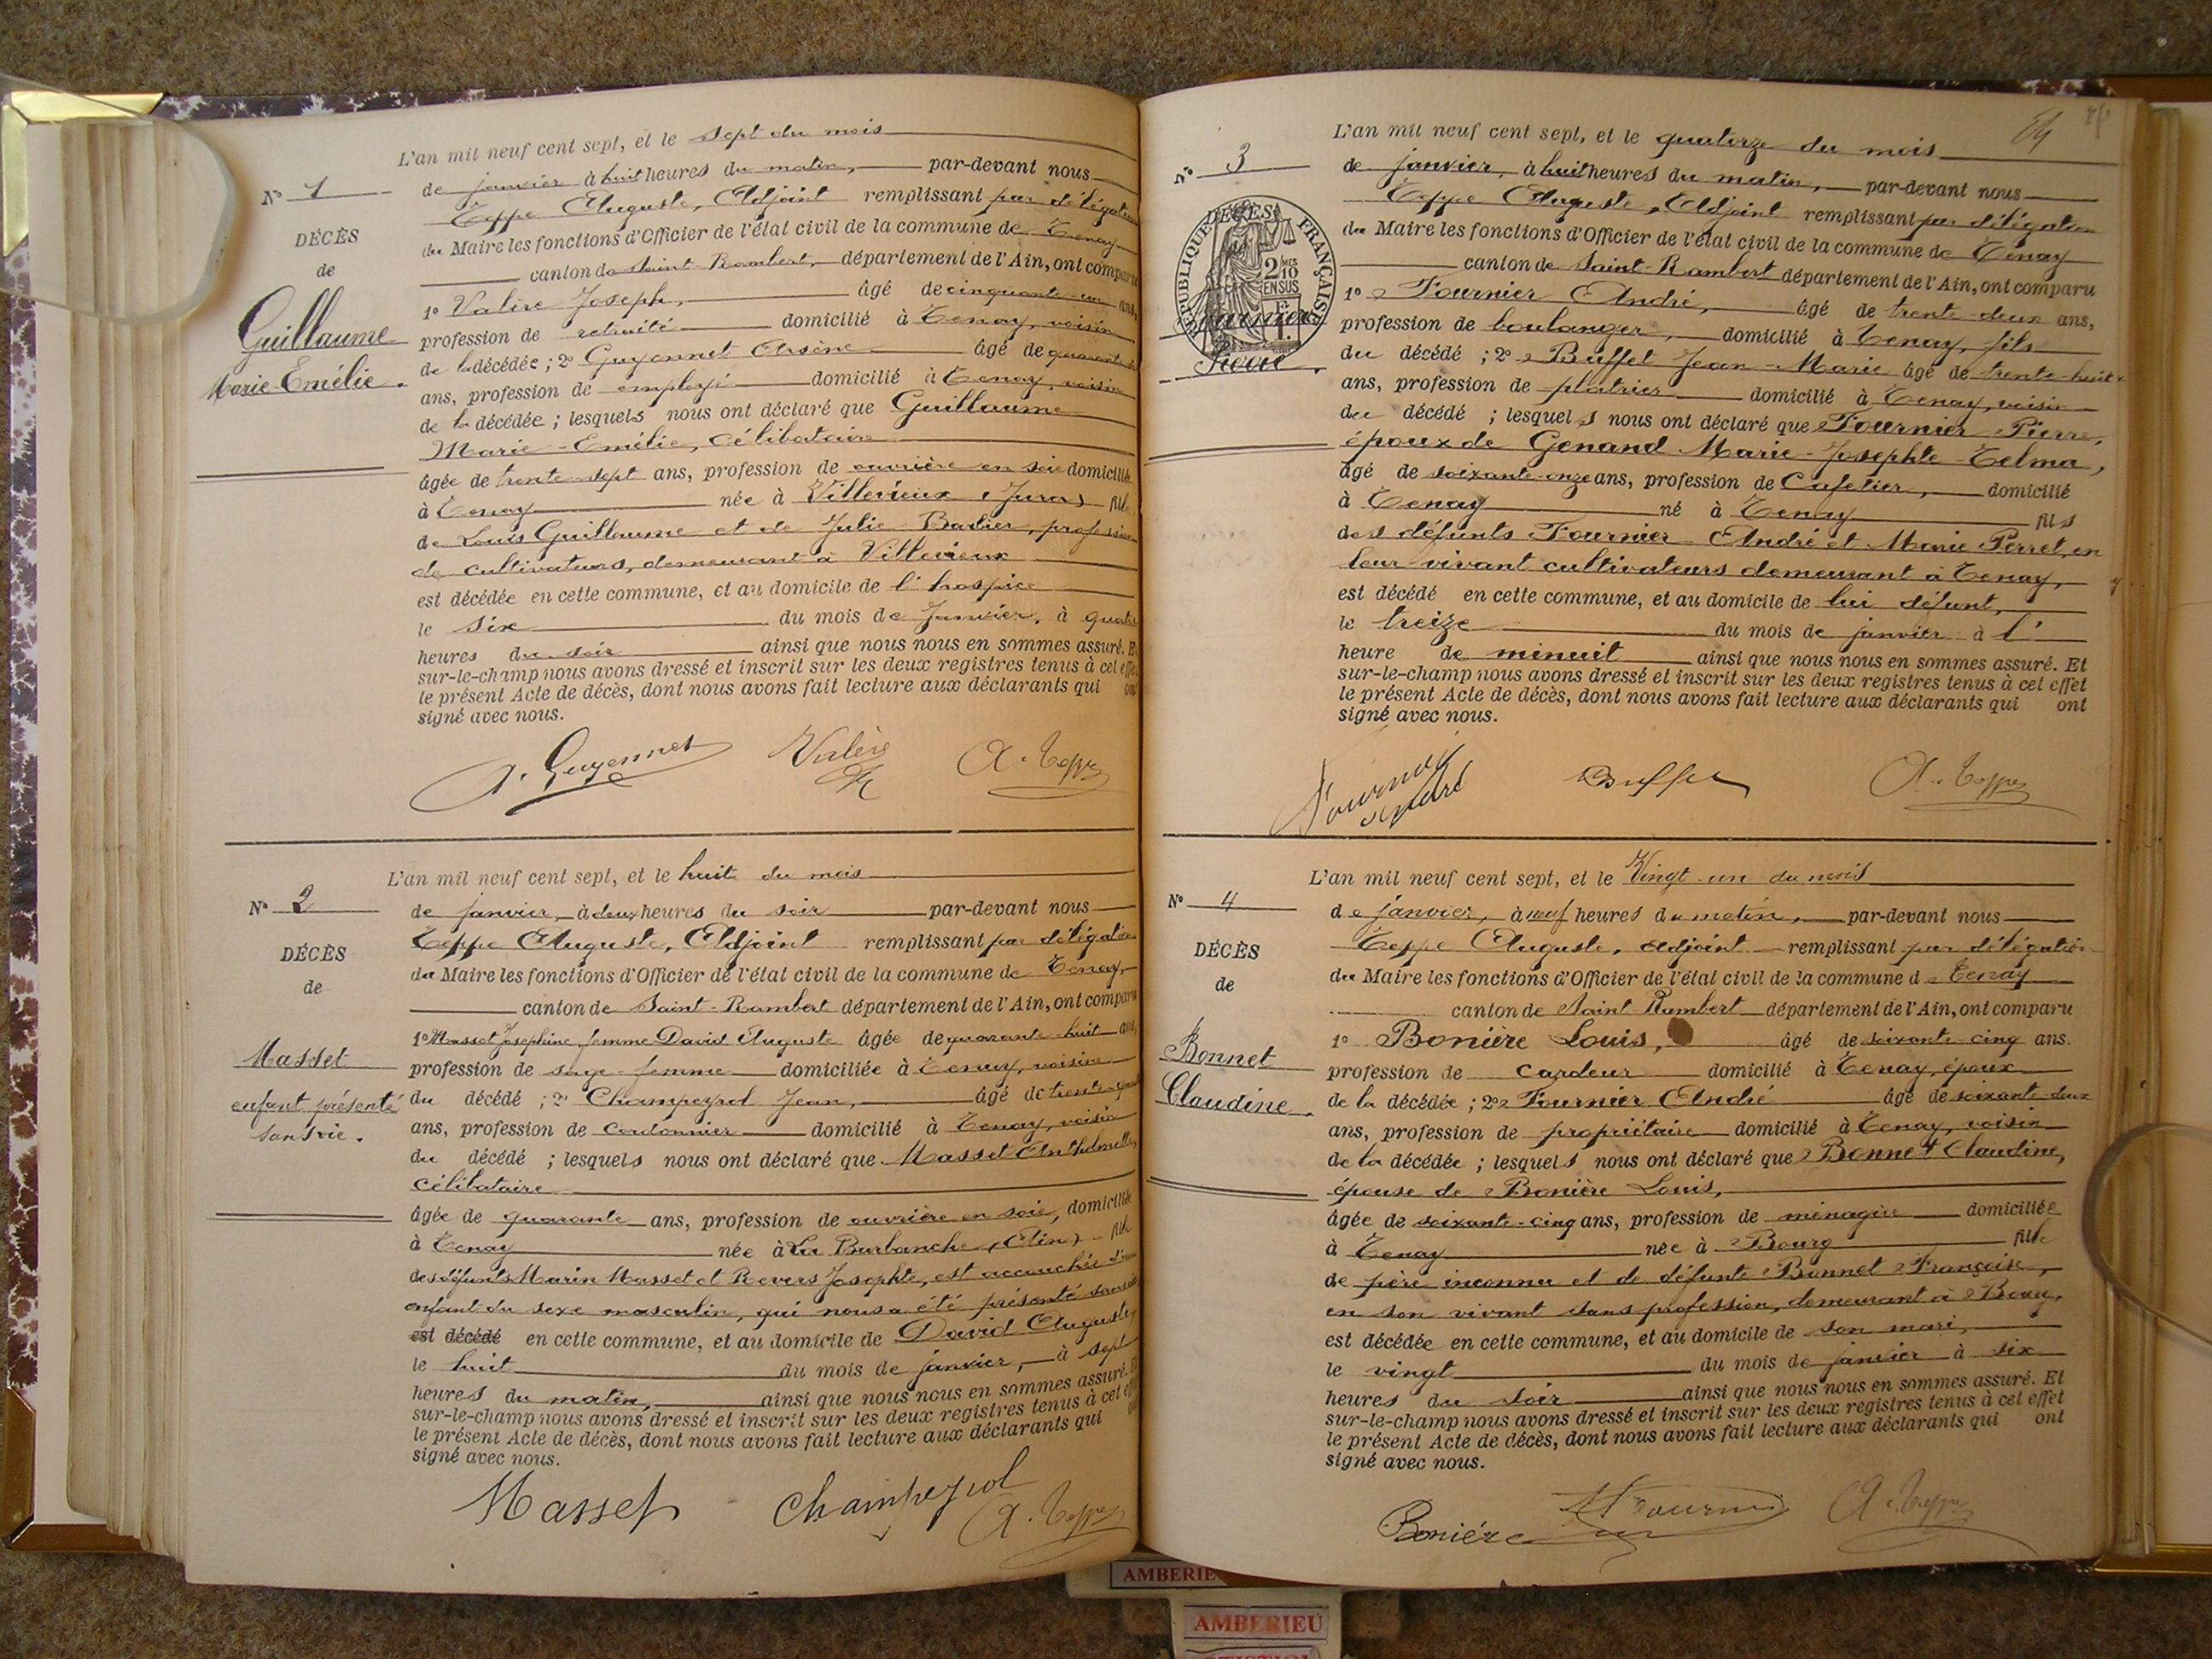 L'an mil neuf cent sept, et le sept du mois
N° 1
de janvier à huit heures du matin, par-devant nous
Teppe Auguste, Adjoint remplissant par délégation
DÉCÈS
du Maire les fonctions d'Officier de l'état civil de la commune de Tenay
de
canton de Saint-Rambert, département de l'Ain, ont comparu
Guillaume
1° Valère Joseph, âgé de cinquante-un ans,
profession de retraité domicilié à Tenay, voisin
Marie-Emélie.
de la décédée ; 2° Guyennet Arsène âgé de quarante
ans, profession de employé domicilié à Tenay, voisin
de la décédée ; lesquels nous ont déclaré que Guillaume
Marie-Emélie, célibataire
âgée de trente-sept ans, profession de ouvrière en soie domiciliée
à Tenay née à Villevieux (Jura) fille
de Louis Guillaume et de Julie Barlier, profession
de cultivateurs, demeurant à Villevieux
est décédée en cette commune, et au domicile de l'hospice
le six du mois de Janvier, à quatre
heures du soir ainsi que nous nous en sommes assuré. Et
sur-le-champ nous avons dressé et inscrit sur les deux registres tenus à cet effet
le présent Acte de décès, dont nous avons fait lecture aux déclarants qui ont
signé avec nous.
A. Guyennet Valère A. Teppe
L'an mil neuf cent sept, et le huit du mois
N° 2
de janvier, à deux heures du soir par-devant nous
Teppe Auguste, Adjoint remplissant par délégation
DÉCÈS
du Maire les fonctions d'Officier de l'état civil de la commune de Tenay,
de
canton de Saint-Rambert département de l'Ain, ont comparu
1° Masset Josephine femme David Auguste âgée de quarante-huit ans,
Masset
profession de sage-femme domiciliée à Tenay, voisine
enfant présenté
du décédé ; 2° Champeyrol Jean, âgé de trente
sans vie.
ans, profession de cordonnier domicilié à Tenay, voisin
du décédé ; lesquels nous ont déclaré que Masset Anthelmette,
célibataire
âgée de quarante ans, profession de ouvrière en soie, domiciliée
à Tenay née à La Burbanche, (Ain) fille
des défunts Marin Masset et Revers Josephte, est accouchée d'un
enfant du sexe masculin, qui nous a été présenté sans vie
est décédé en cette commune, et au domicile de David Auguste,
le huit du mois de janvier, à sept
heures du matin, ainsi que nous nous en sommes assuré. Et
sur-le-champ nous avons dressé et inscrit sur les deux registres tenus à cet effet
le présent Acte de décès, dont nous avons fait lecture aux déclarants qui
signé avec nous.
Masset Champeyrol A. Teppe
L'an mil neuf cent sept, et le quatorze du mois
N° 3
de janvier, à huit heures du matin, par-devant nous
Teppe Auguste, Adjoint remplissant par délégation
RÉPUBLIQUE FRANÇAISE
DÉCÈS
2 MES 10 EN SUS
du Maire les fonctions d'Officier de l'état civil de la commune de Tenay
canton de Saint-Rambert département de l'Ain, ont comparu
1° Fournier André, âgé de trente-deux ans,
Fournier
profession de boulanger, domicilié à Tenay, fils
Pierre.
du décédé ; 2° Buffet Jean-Marie âgé de trente-huit
ans, profession de plâtrier domicilié à Tenay, voisin
du décédé ; lesquels nous ont déclaré que Fournier Pierre,
époux de Genand Marie-Josephte-Telma,
âgé de soixante-onze ans, profession de Cafetier, domicilié
à Tenay né à Tenay fils
des défunts Fournier André et Marie Perret, en
leur vivant cultivateurs demeurant à Tenay,
est décédé en cette commune, et au domicile de lui défunt,
le treize du mois de janvier à l'
heure de minuit ainsi que nous nous en sommes assuré. Et
sur-le-champ nous avons dressé et inscrit sur les deux registres tenus à cet effet
le présent Acte de décès, dont nous avons fait lecture aux déclarants qui ont
signé avec nous.
Fournier André Buffet A. Teppe
L'an mil neuf cent sept, et le Vingt-un du mois
N° 4
de janvier, à neuf heures du matin, par-devant nous
Teppe Auguste, adjoint remplissant par délégation
DÉCÈS
du Maire les fonctions d'Officier de l'état civil de la commune d Tenay
de
canton de Saint Rambert département de l'Ain, ont comparu
1° Bonière Louis, âgé de soixante-cinq ans.
Bonnet
profession de cardeur domicilié à Tenay, époux
Claudine.
de la décédée ; 2° Fournier André âgé de soixante-deux
ans, profession de propriétaire domicilié à Tenay, voisin
de la décédée ; lesquels nous ont déclaré que Bonnet Claudine,
épouse de Bonière Louis,
âgée de soixante-cinq ans, profession de ménagère domiciliée
à Tenay née à Bourg fille
de père inconnu et de défunte Bonnet Françoise,
en son vivant sans profession, demeurant à Bourg,
est décédée en cette commune, et au domicile de son mari,
le vingt du mois de janvier à six
heures du soir ainsi que nous nous en sommes assuré. Et
sur-le-champ nous avons dressé et inscrit sur les deux registres tenus à cet effet
le présent Acte de décès, dont nous avons fait lecture aux déclarants qui ont
signé avec nous.
Bonière A. Teppe
AMBERIEU